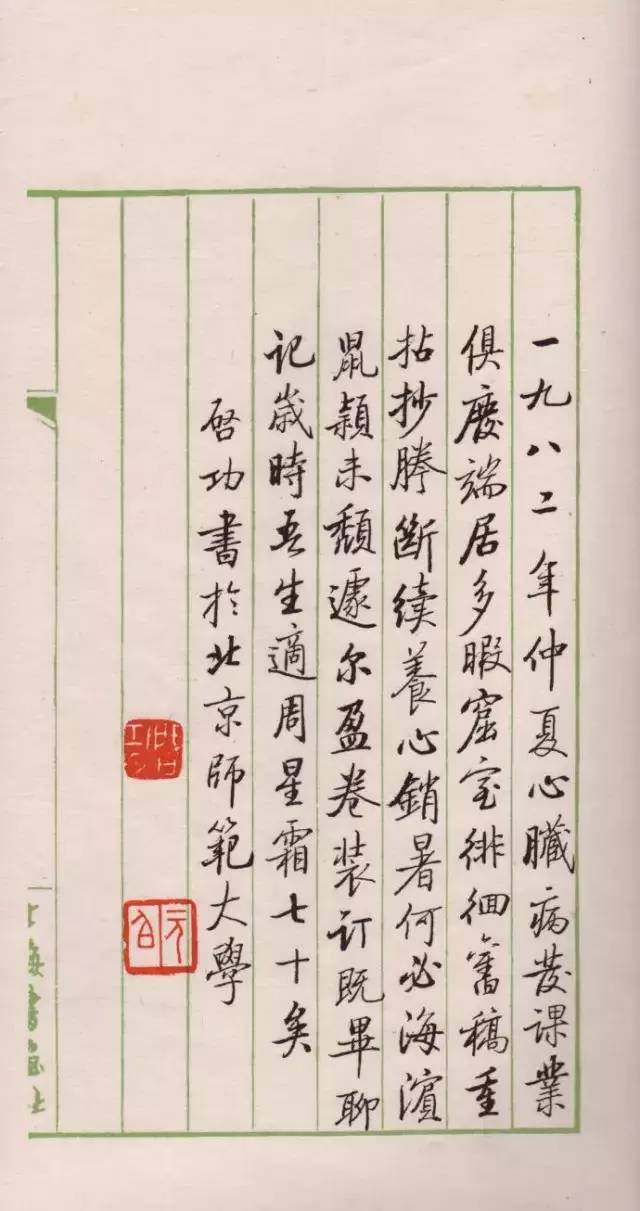 一九八二年仲夏心臟病發課業
俱廢端居多暇窟室徘徊舊稿重
拈抄謄斷續養心銷暑何必海濱
鼠穎未頹遽尔盈卷装订既畢聊
记歲時吾生適周星霜七十矣
啓功書於北京師範大學
啓功
元白
上海書畫社